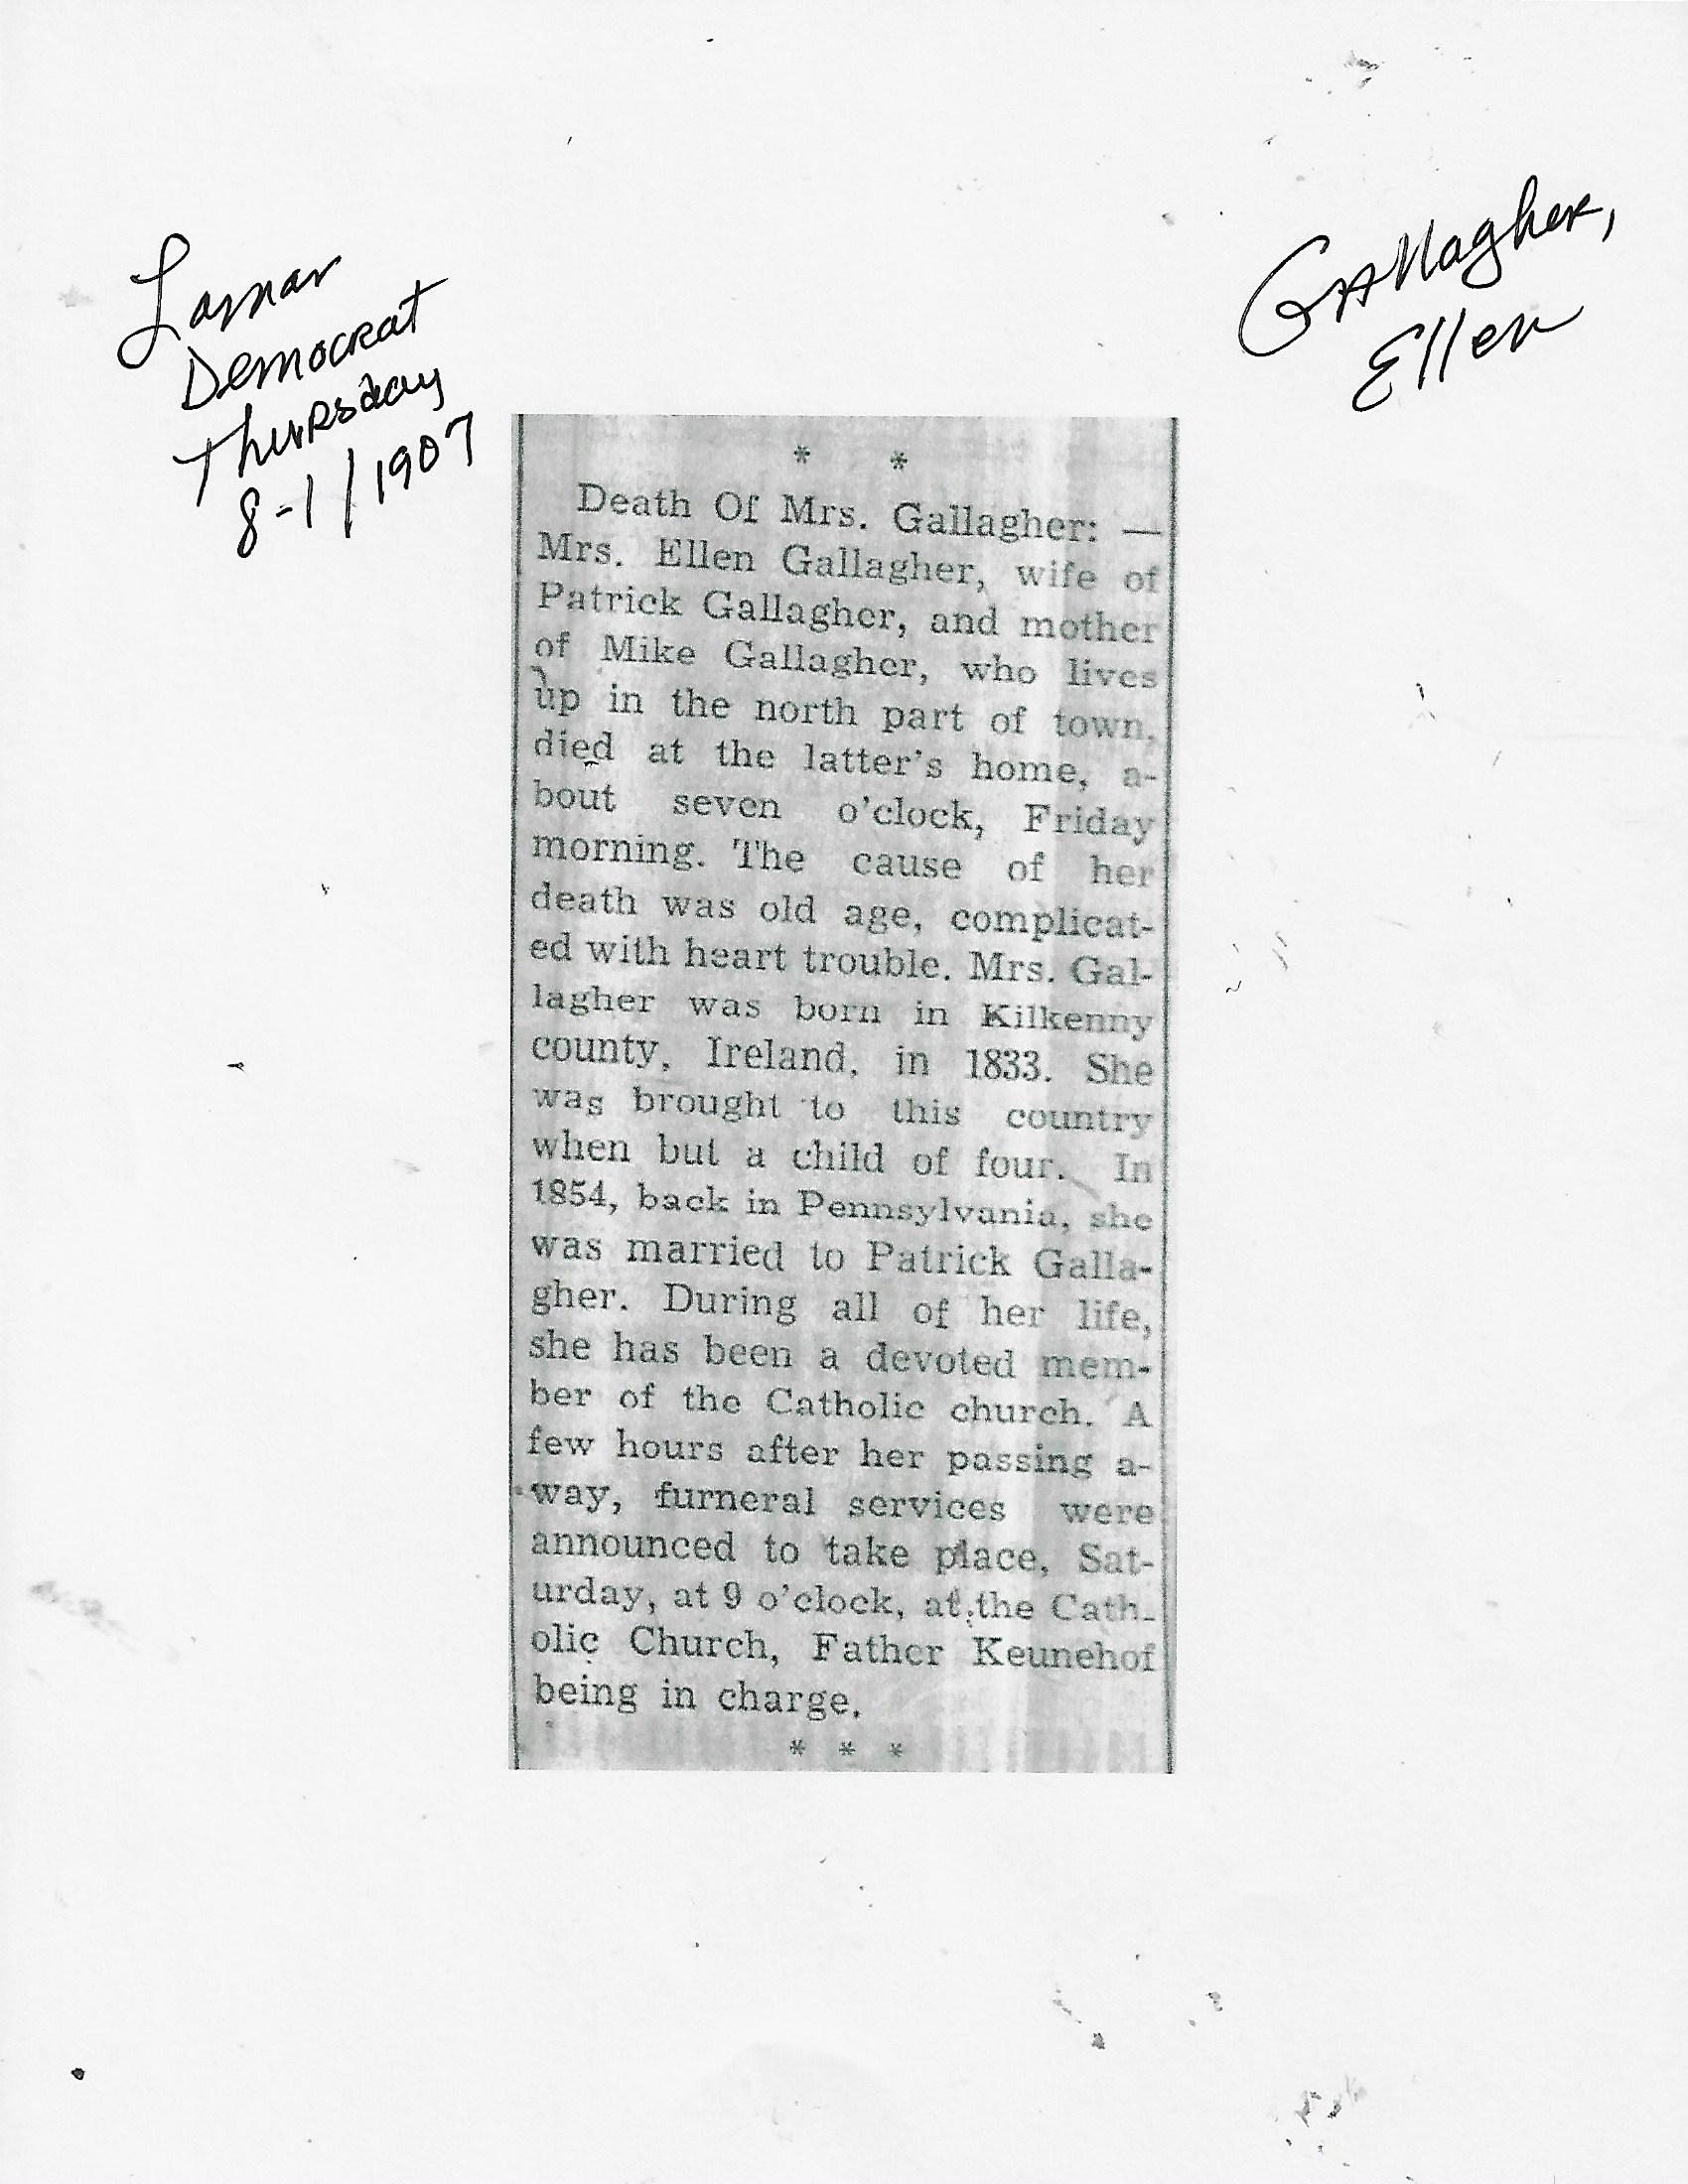 Lamar
Democrat
Thursday
8-1/1907
Gallagher,
Ellen
* *
Death Of Mrs. Gallagher: —
Mrs. Ellen Gallagher, wife of
Patrick Gallagher, and mother
of Mike Gallagher, who lives
up in the north part of town,
died at the latter's home, a-
bout seven o'clock, Friday
morning. The cause of her
death was old age, complicat-
ed with heart trouble. Mrs. Gal-
lagher was born in Kilkenny
county, Ireland, in 1833. She
was brought to this country
when but a child of four. In
1854, back in Pennsylvania, she
was married to Patrick Galla-
gher. During all of her life,
she has been a devoted mem-
ber of the Catholic church. A
few hours after her passing a-
way, furneral services were
announced to take place, Sat-
urday, at 9 o'clock, at the Cath-
olic Church, Father Keunehof
being in charge.
* * *